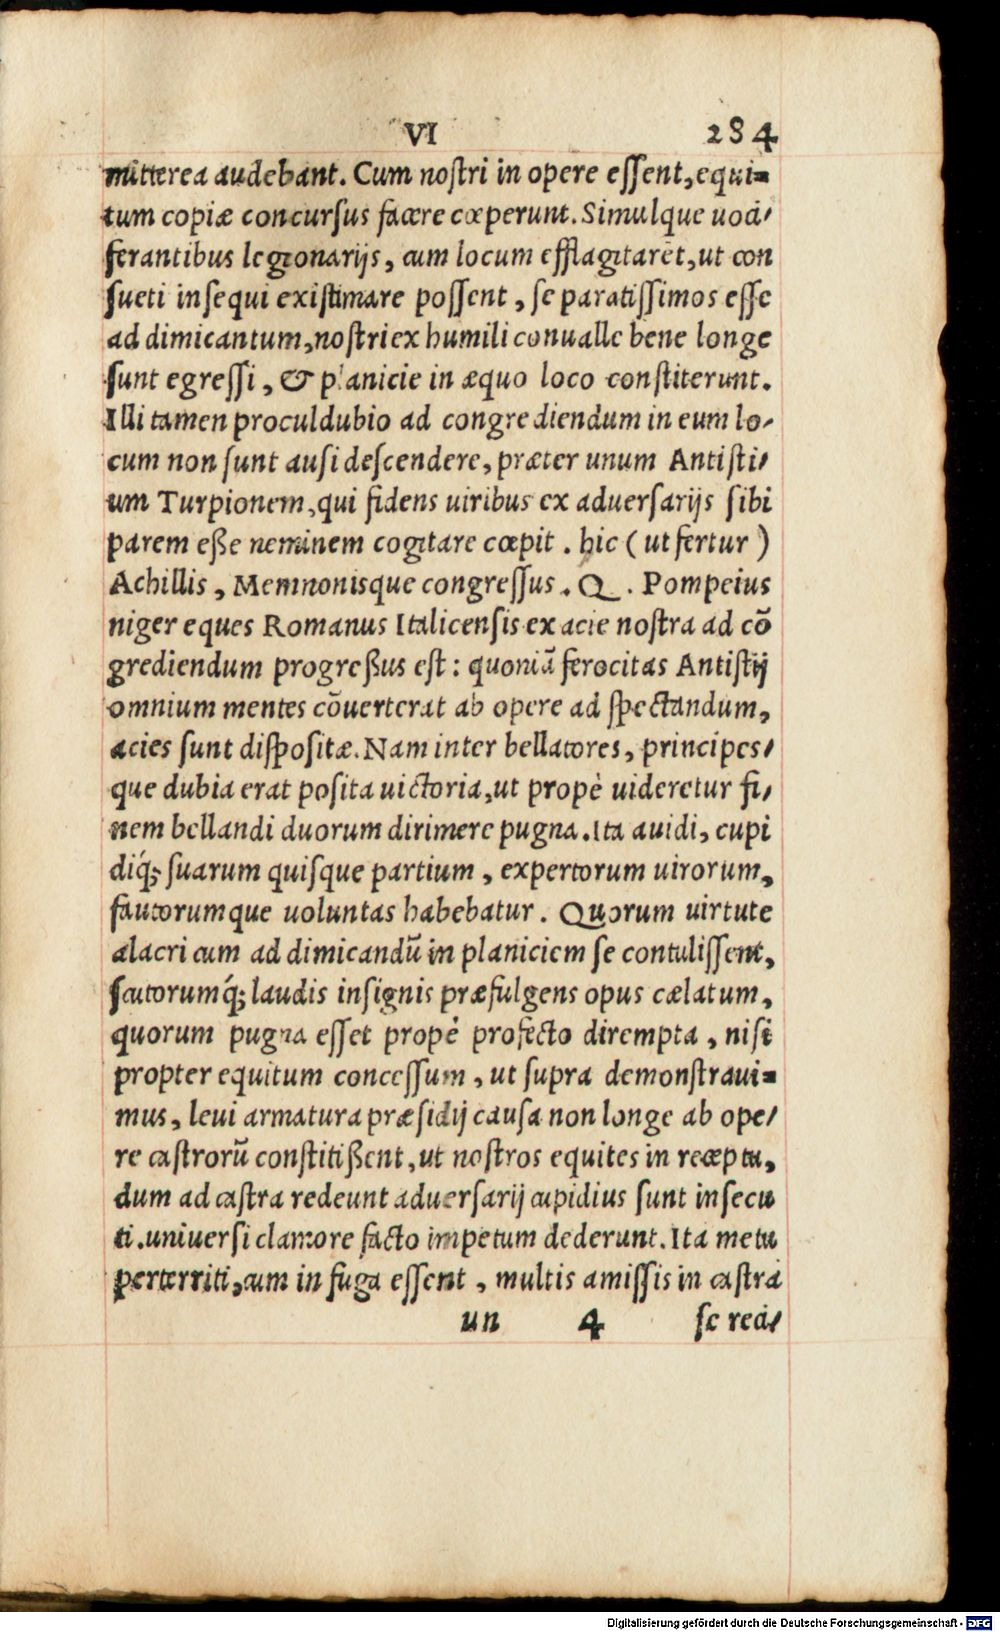 VI 284
mitterea audebant. Cum noſtri in opere eſſent, equi=
tum copiæ concurſus facere cœperunt. Simulque uoci/
ferantibus legionarijs, cum locum efflagitarēt, ut con
ſueti inſequi exiſtimare poſſent, ſe paratiſſimos eſſe
ad dimicantum, noſtri ex humili conualle bene longe
ſunt egreſſi, & planicie in æquo loco conſtiterunt.
Illi tamen proculdubio ad congrediendum in eum lo/
cum non ſunt auſi deſcendere, præter unum Antiſti/
um Turpionem, qui fidens uiribus ex aduerſarijs ſibi
parem eße neminem cogitare cœpit. hic (ut fertur)
Achillis, Memnonisque congreſſus. Q. Pompeius
niger eques Romanus Italicenſis ex acie noſtra ad cō
grediendum progreßus eſt: quoniā ferocitas Antiſtij
omnium mentes cōuerterat ab opere ad ſpectandum,
acies ſunt diſpoſitæ. Nam inter bellatores, principes/
que dubia erat poſita uictoria, ut propè uideretur fi/
nem bellandi duorum dirimere pugna. Ita auidi, cupi
diq́; ſuarum quiſque partium, expertorum uirorum,
fautorumque uoluntas habebatur. Quorum uirtute
alacri cum ad dimicandū in planiciem ſe contuliſſent,
ſcutorumq́; laudis inſignis præfulgens opus cælatum,
quorum pugna eſſet propè profecto dirempta, niſi
propter equitum conceſſum, ut ſupra demonſtraui=
mus, leui armatura præſidij cauſa non longe ab ope/
re caſtrorū conſtitißent, ut noſtros equites in receptu,
dum ad caſtra redeunt aduerſarij cupidius ſunt inſecu
ti. uniuerſi clamore facto impetum dederunt. Ita metu
perterriti, cum in fuga eſſent, multis amiſſis in caſtra
un 4 ſe reci/
Digitalisierung gefördert durch die Deutsche Forschungsgemeinschaft - DFG